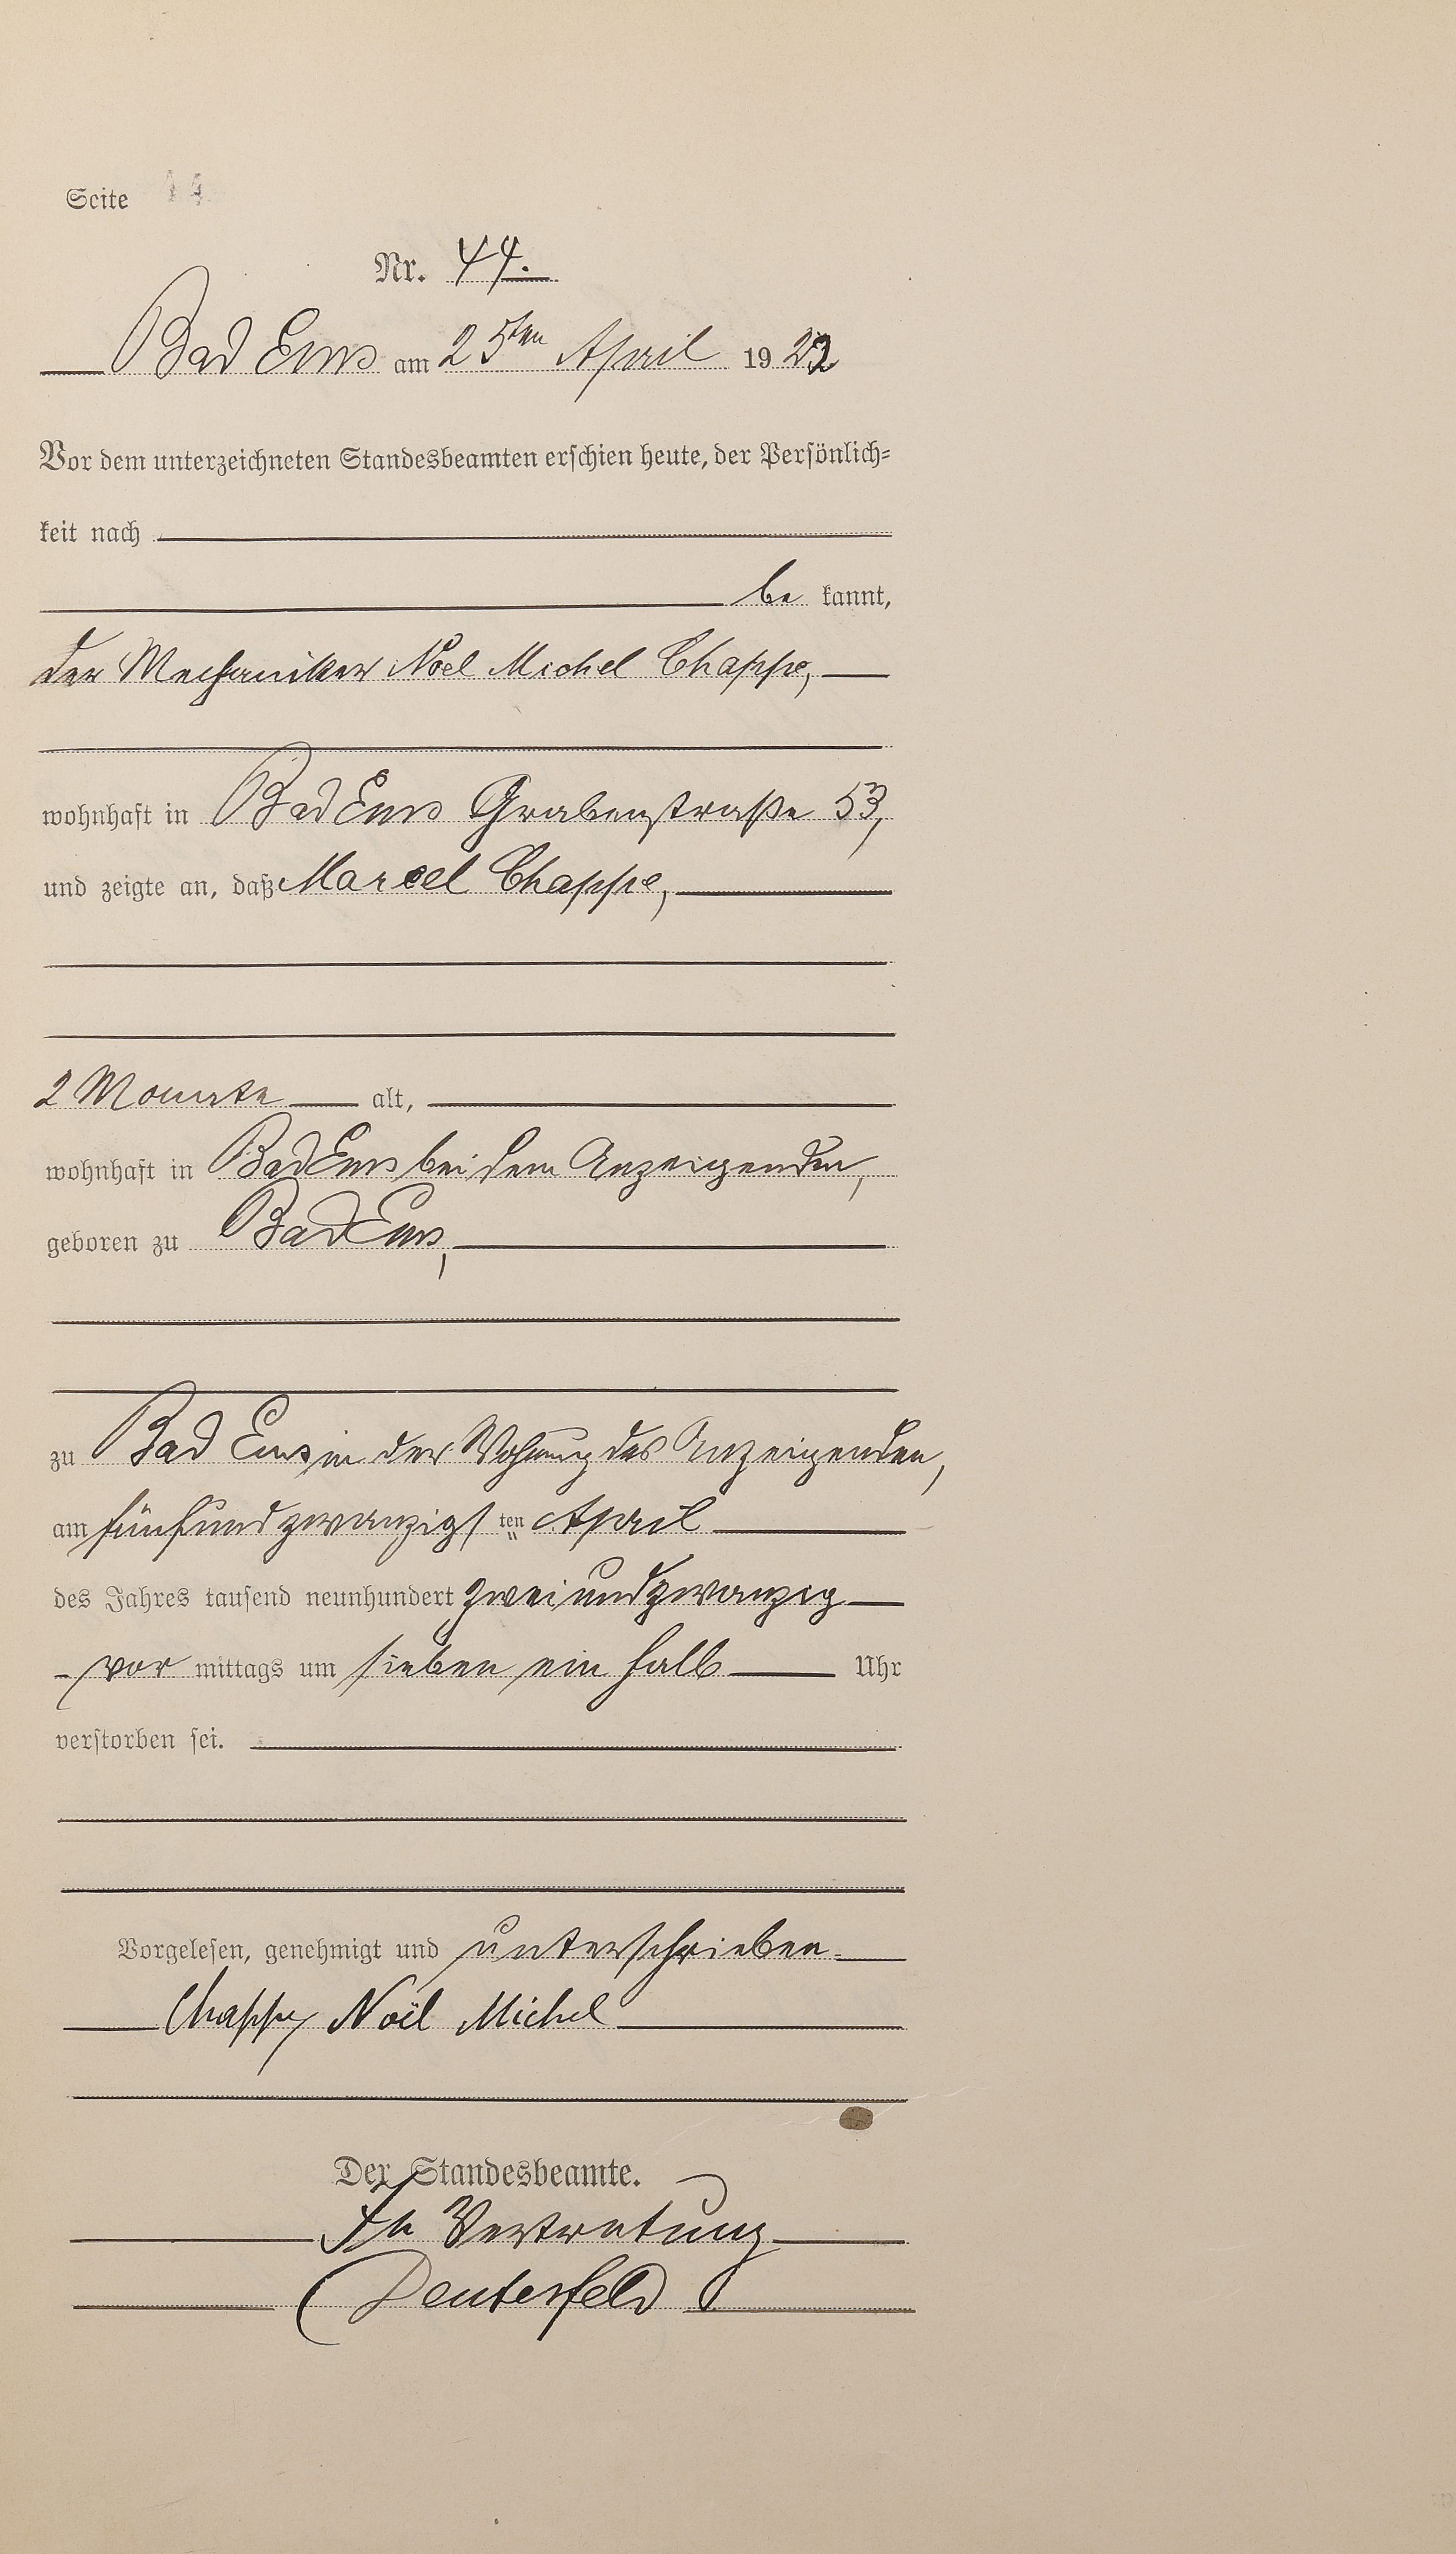 Seite 44
Nr. 44.
Bad Ems am 25ten April 1922
Vor dem unterzeichneten Standesbeamten erschien heute, der Persönlich-
keit nach
be kannt,
der Mechaniker Noel Michel Chappe,
wohnhaft in Bad Ems Grabenstraße 53,
und zeigte an, daß Marcel Chappe,
2 Monate alt,
wohnhaft in Bad Ems bei dem Anzeigenden,
geboren zu Bad Ems,
zu Bad Ems in der Wohnung des Anzeigenden,
am fünfundzwanzigsten April
des Jahres tausend neunhundert zweiundzwanzig
vor mittags um sieben ein halb Uhr
verstorben sei.
Vorgelesen, genehmigt und unterschrieben.
Chappe Noël Michel
Der Standesbeamte.
In Vertretung